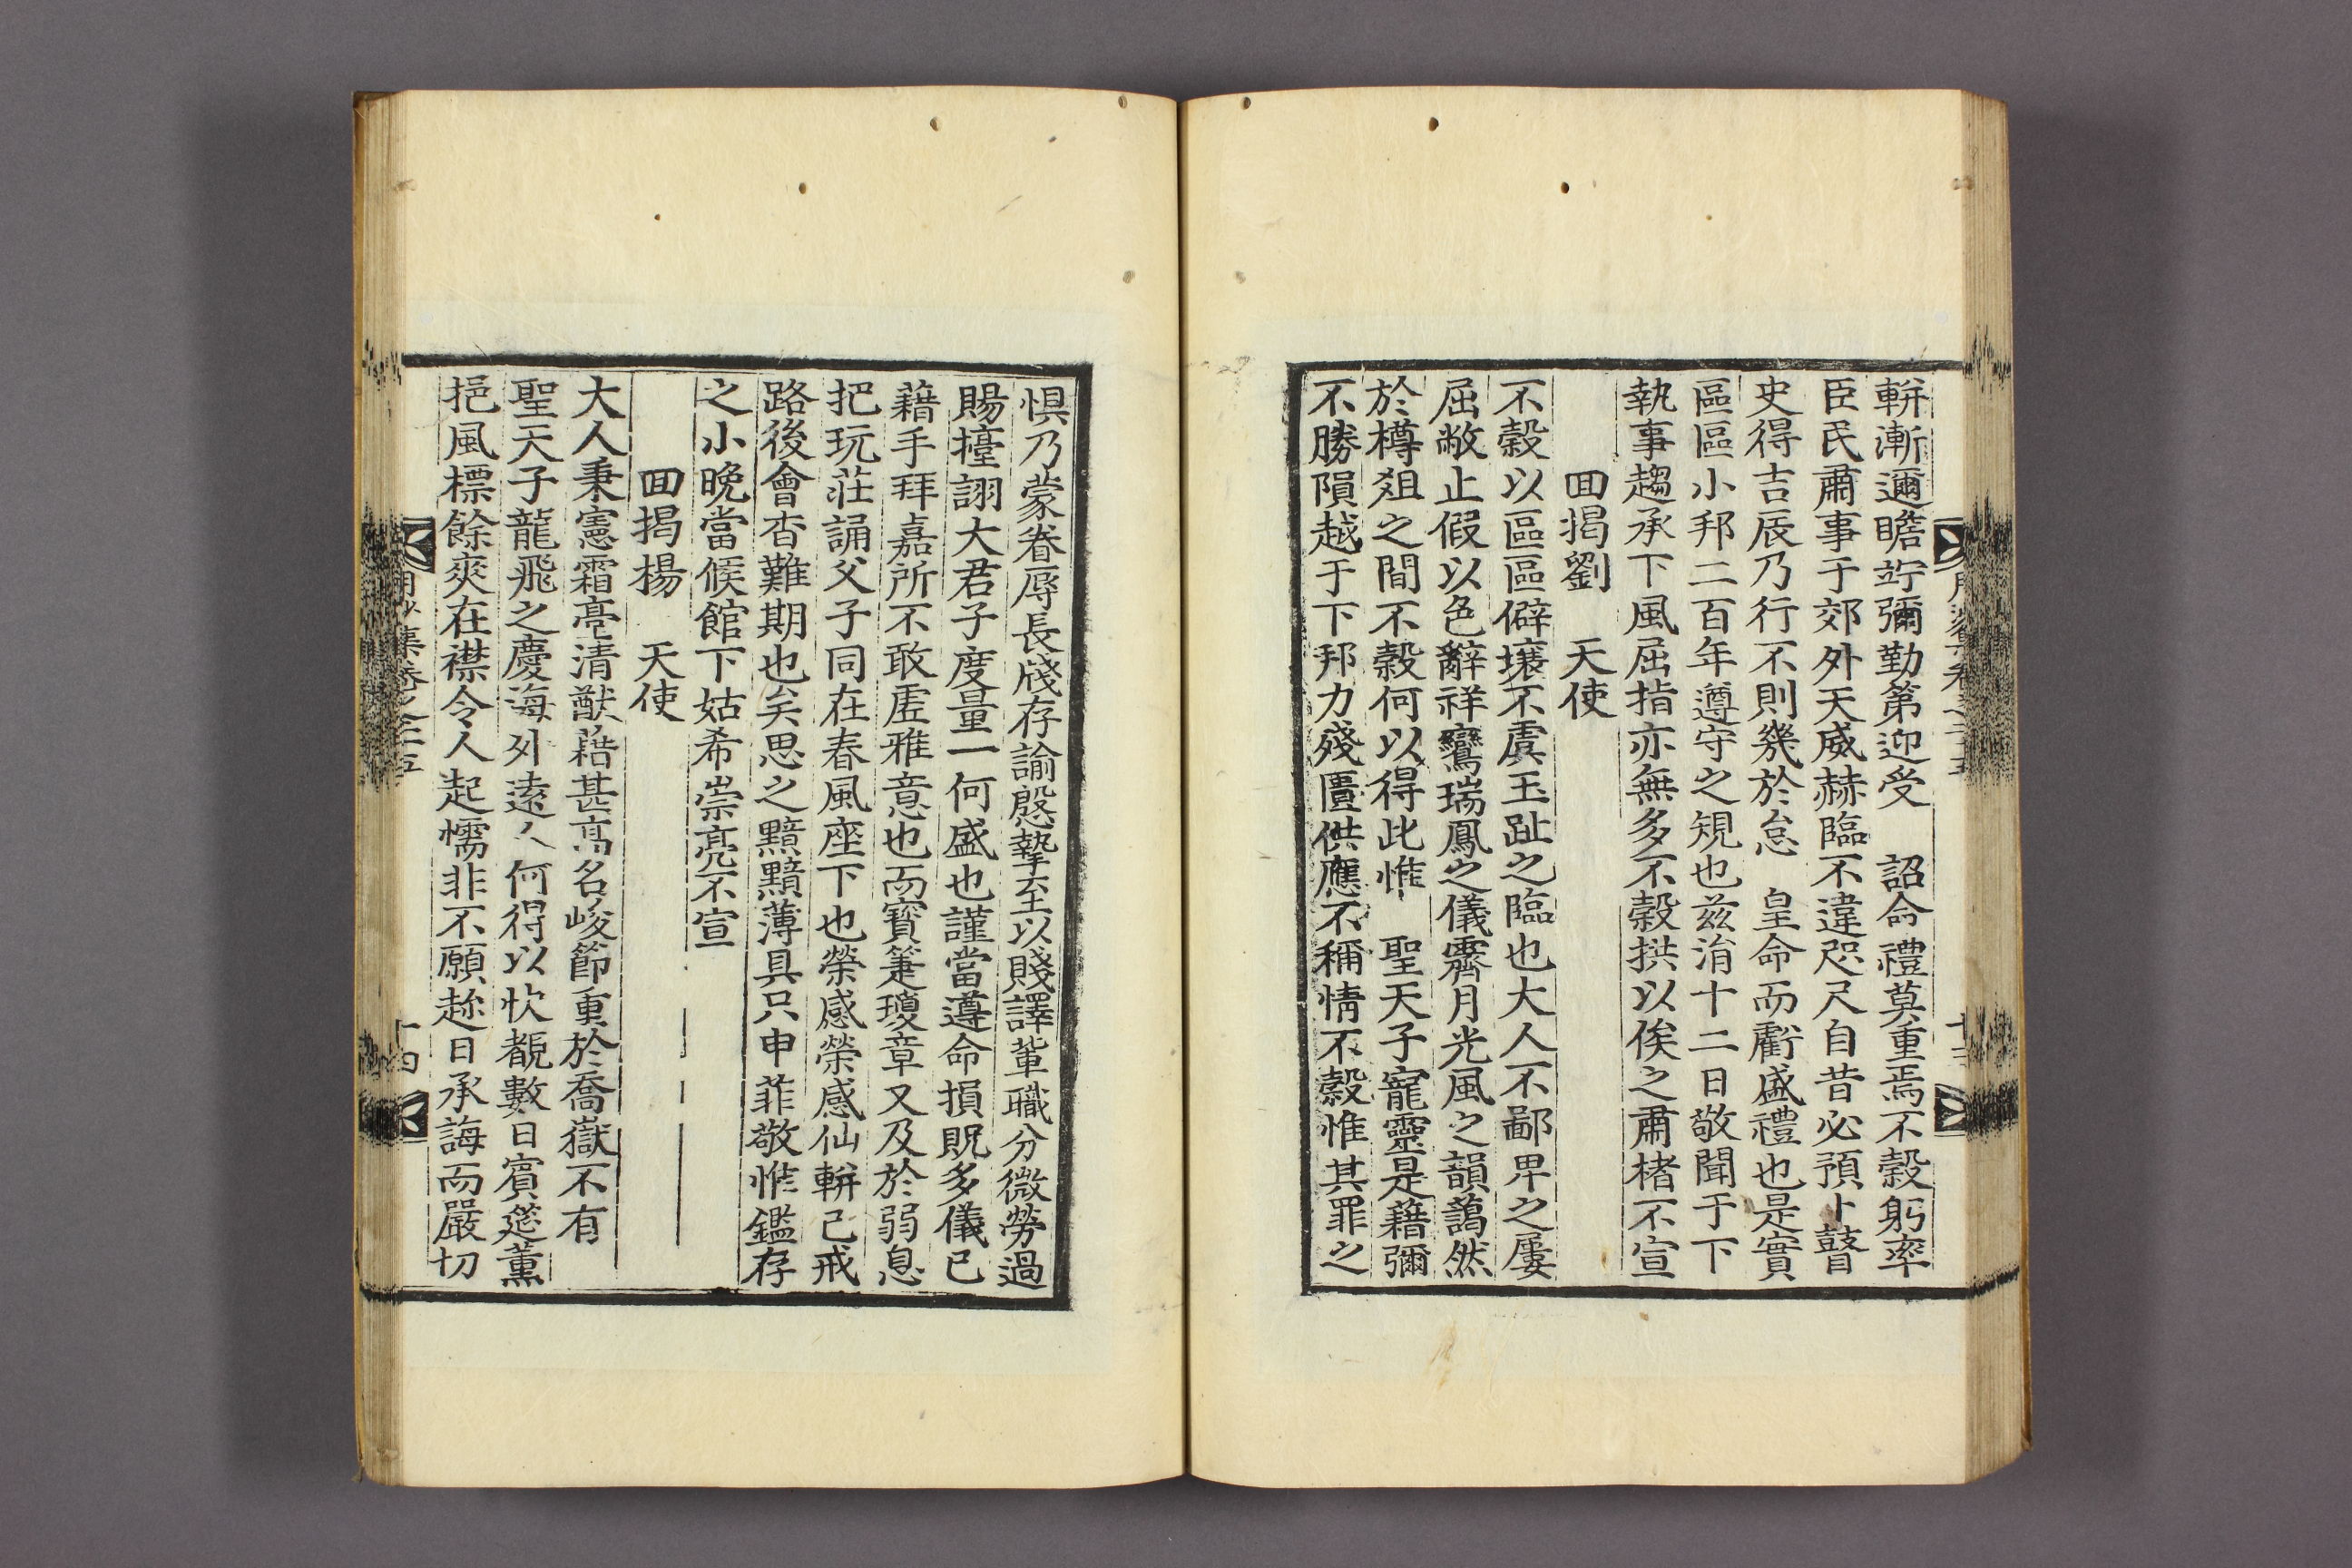 軿漸邇瞻竚彌勤第迎受　詔命禮莫重焉不穀躬率
臣民肅事于郊外天威赫臨不違咫尺自昔必預卜瞽
史得吉辰乃行不則幾於怠　皇命而虧盛禮也是實
區區小邦二百年遵守之規也玆涓十二日敬聞于下
執事趨承下風屈指亦無多不穀拱以俟之肅楮不宣
回揭劉　天使
不穀以區區僻壤不虞玉趾之臨也大人不鄙卑之屢
屈敝止假以色辭祥鸞瑞鳳之儀霽月光風之韻藹然
於樽俎之間不穀何以得此惟　聖天子寵靈是藉彌
不勝隕越于下邦力殘匱供應不稱情不穀惟其罪之
惧乃蒙眷辱長牋存諭慇摯至以賤譯軰職分微勞過
賜擡詡大君子度量一何盛也謹當遵命損貺多儀已
藉手拜嘉所不敢虛雅意也而寳箑瓊章又及於弱息
把玩莊誦父子同在春風座下也榮感榮感仙軿已戒
路後會杳難期也矣思之黯黯薄具只申菲敬惟鑑存
之小晚當候館下姑希崇亮不宣
回揭楊　天使
大人秉憲霜臺清猷藉甚高名峻節重於喬嶽不有
聖天子龍飛之慶海外遠人何得以忻覩數日賓筵薰
挹風標餘爽在襟令人起懦非不願趁日承誨而嚴切
月沙集卷之二十五
十四